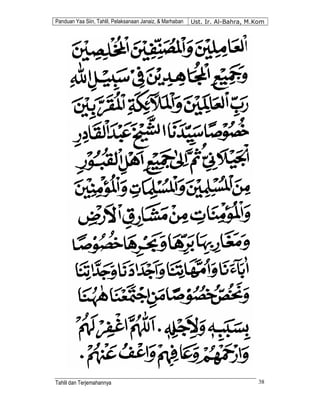 Panduan Yaa Siin, Tahlil, Pelaksanaan Janaiz, & Marhaban Ust. Ir. Al-Bahra, M.Kom
الْعَامِلِيْنَ وَالْمُصَنِّفِيْنَ الْمُخْلِصِيْنَ
وَجَمِيْعِ الْمُجَاهِدِيْنَ فِيْ سَبِيْلِ اللّٰهِ
رَبِّ الْعَالَمِيْنَ وَالْمَلَائِكَةِ الْمُقَرَّبِيْنَ
خُصُوْصًا سَيِّدَنَا الشَّيْخَ عَبْدَ الْقَادِرِ
الْجَيْلَانِيْ ثُمَّ اِلٰى جَمِيْعِ اَهْلِ الْقُبُوْرِ
مِنَ الْمُسْلِمِيْنَ وَالْمُسْلِمَاتِ وَالْمُؤْمِنِيْنَ
وَالْمُؤْمِنَاتِ مِنْ مَشَارِقِ الْاَرْضِ
وَمَغَارِبِهَا بَرِّهَا وَبَحْرِهَا خُصُوْصًا
اٰبَاءَنَا وَاُمَّهَاتِنَا وَاَجْدَادَنَا وَجَدَّاتِنَا
وَنَخُصُّ خُصُوْصًا مَنِ اجْتَمَعْنَا هٰهُنَا
بِسَبَبِهِ وَلِاَجْلِهِ . اَللّٰهُمَّ اغْفِرْ لَهُمْ
وَارْحَمْهُمْ وَعَافِهِمْ وَاعْفُ عَنْهُمْ .
Tahlil dan Terjemahannya 38